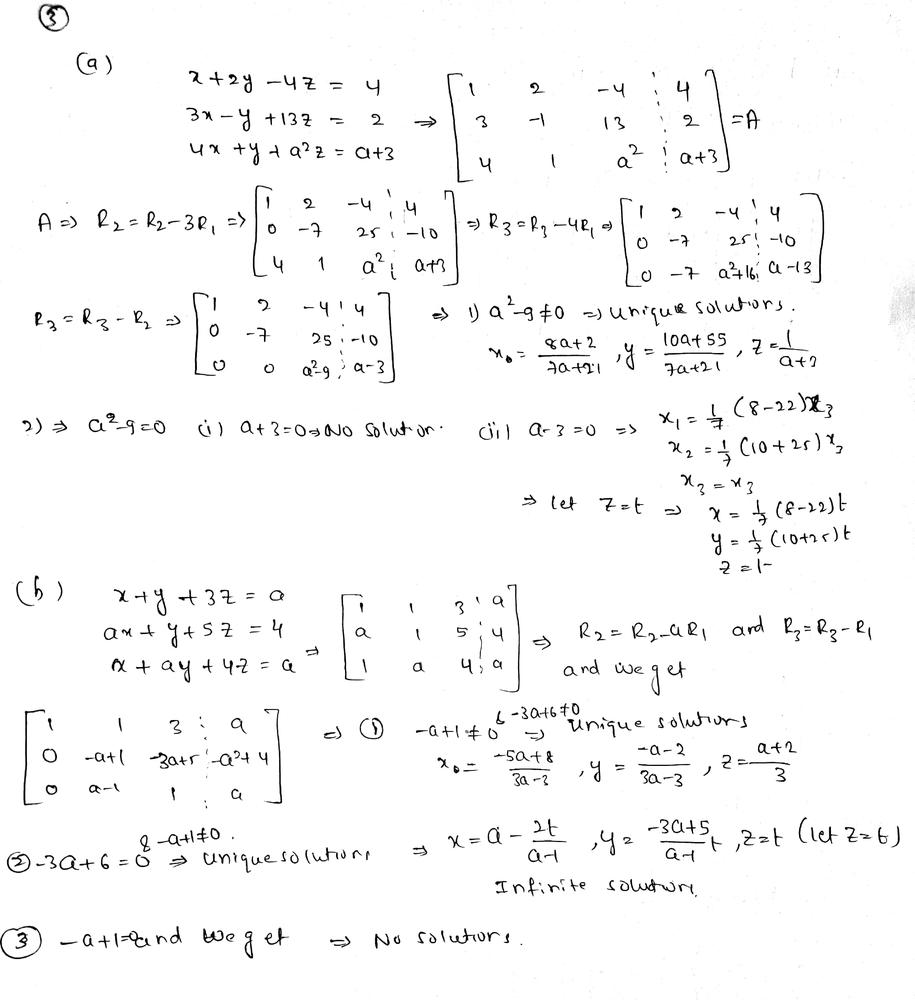 ③
(a)
x+2y-4z = 4
3x-y+13z = 2 ⇒ [1 2 -4 ¦ 4; 3 -1 13 ¦ 2; 4 1 a² ¦ a+3] =A
4x+y+a²z = a+3
A⇒ R₂=R₂-3R₁ ⇒ [1 2 -4 ¦ 4; 0 -7 25 ¦ -10; 4 1 a² ¦ a+3] ⇒ R₃=R₃-4R₁ ⇒ [1 2 -4 ¦ 4; 0 -7 25 ¦ -10; 0 -7 a²+16 ¦ a-13]
R₃=R₃-R₂ ⇒ [1 2 -4 ¦ 4; 0 -7 25 ¦ -10; 0 0 a²-9 ¦ a-3] ⇒ 1) a²-9≠0 ⇒ unique solutions.
x₀ = (8a+2)/(7a+21), y = (10a+55)/(7a+21), z = 1/(a+3)
2) ⇒ a²-9=0 (i) a+3=0 ⇒ No solution. (ii) a-3=0 ⇒ x₁ = 1/7 (8-22)x₃
x₂ = 1/7 (10+25)x₃
x₃ = x₃
⇒ let z=t ⇒ x = 1/7 (8-22)t
y = 1/7 (10+25)t
z = t
(b)
x+y+3z = a
ax+y+5z = 4 ⇒ [1 1 3 ¦ a; a 1 5 ¦ 4; 1 a 4 ¦ a] ⇒ R₂=R₂-aR₁ and R₃=R₃-R₁
x+ay+4z = a
and we get
[1 1 3 ¦ a; 0 -a+1 -3a+5 ¦ -a²+4; 0 a-1 1 ¦ a] ⇒ ① -a+1≠0 & -3a+6≠0 ⇒ unique solutions
x₀ = (-5a+8)/(3a-3), y = (-a-2)/(3a-3), z = (a+2)/3
② -3a+6=0 & -a+1≠0. ⇒ unique solutions ⇒ x = a - 2t/(a-1), y = (-3a+5)/(a-1) t, z=t (let z=t)
Infinite solution.
③ -a+1=0 and we get ⇒ No solutions.